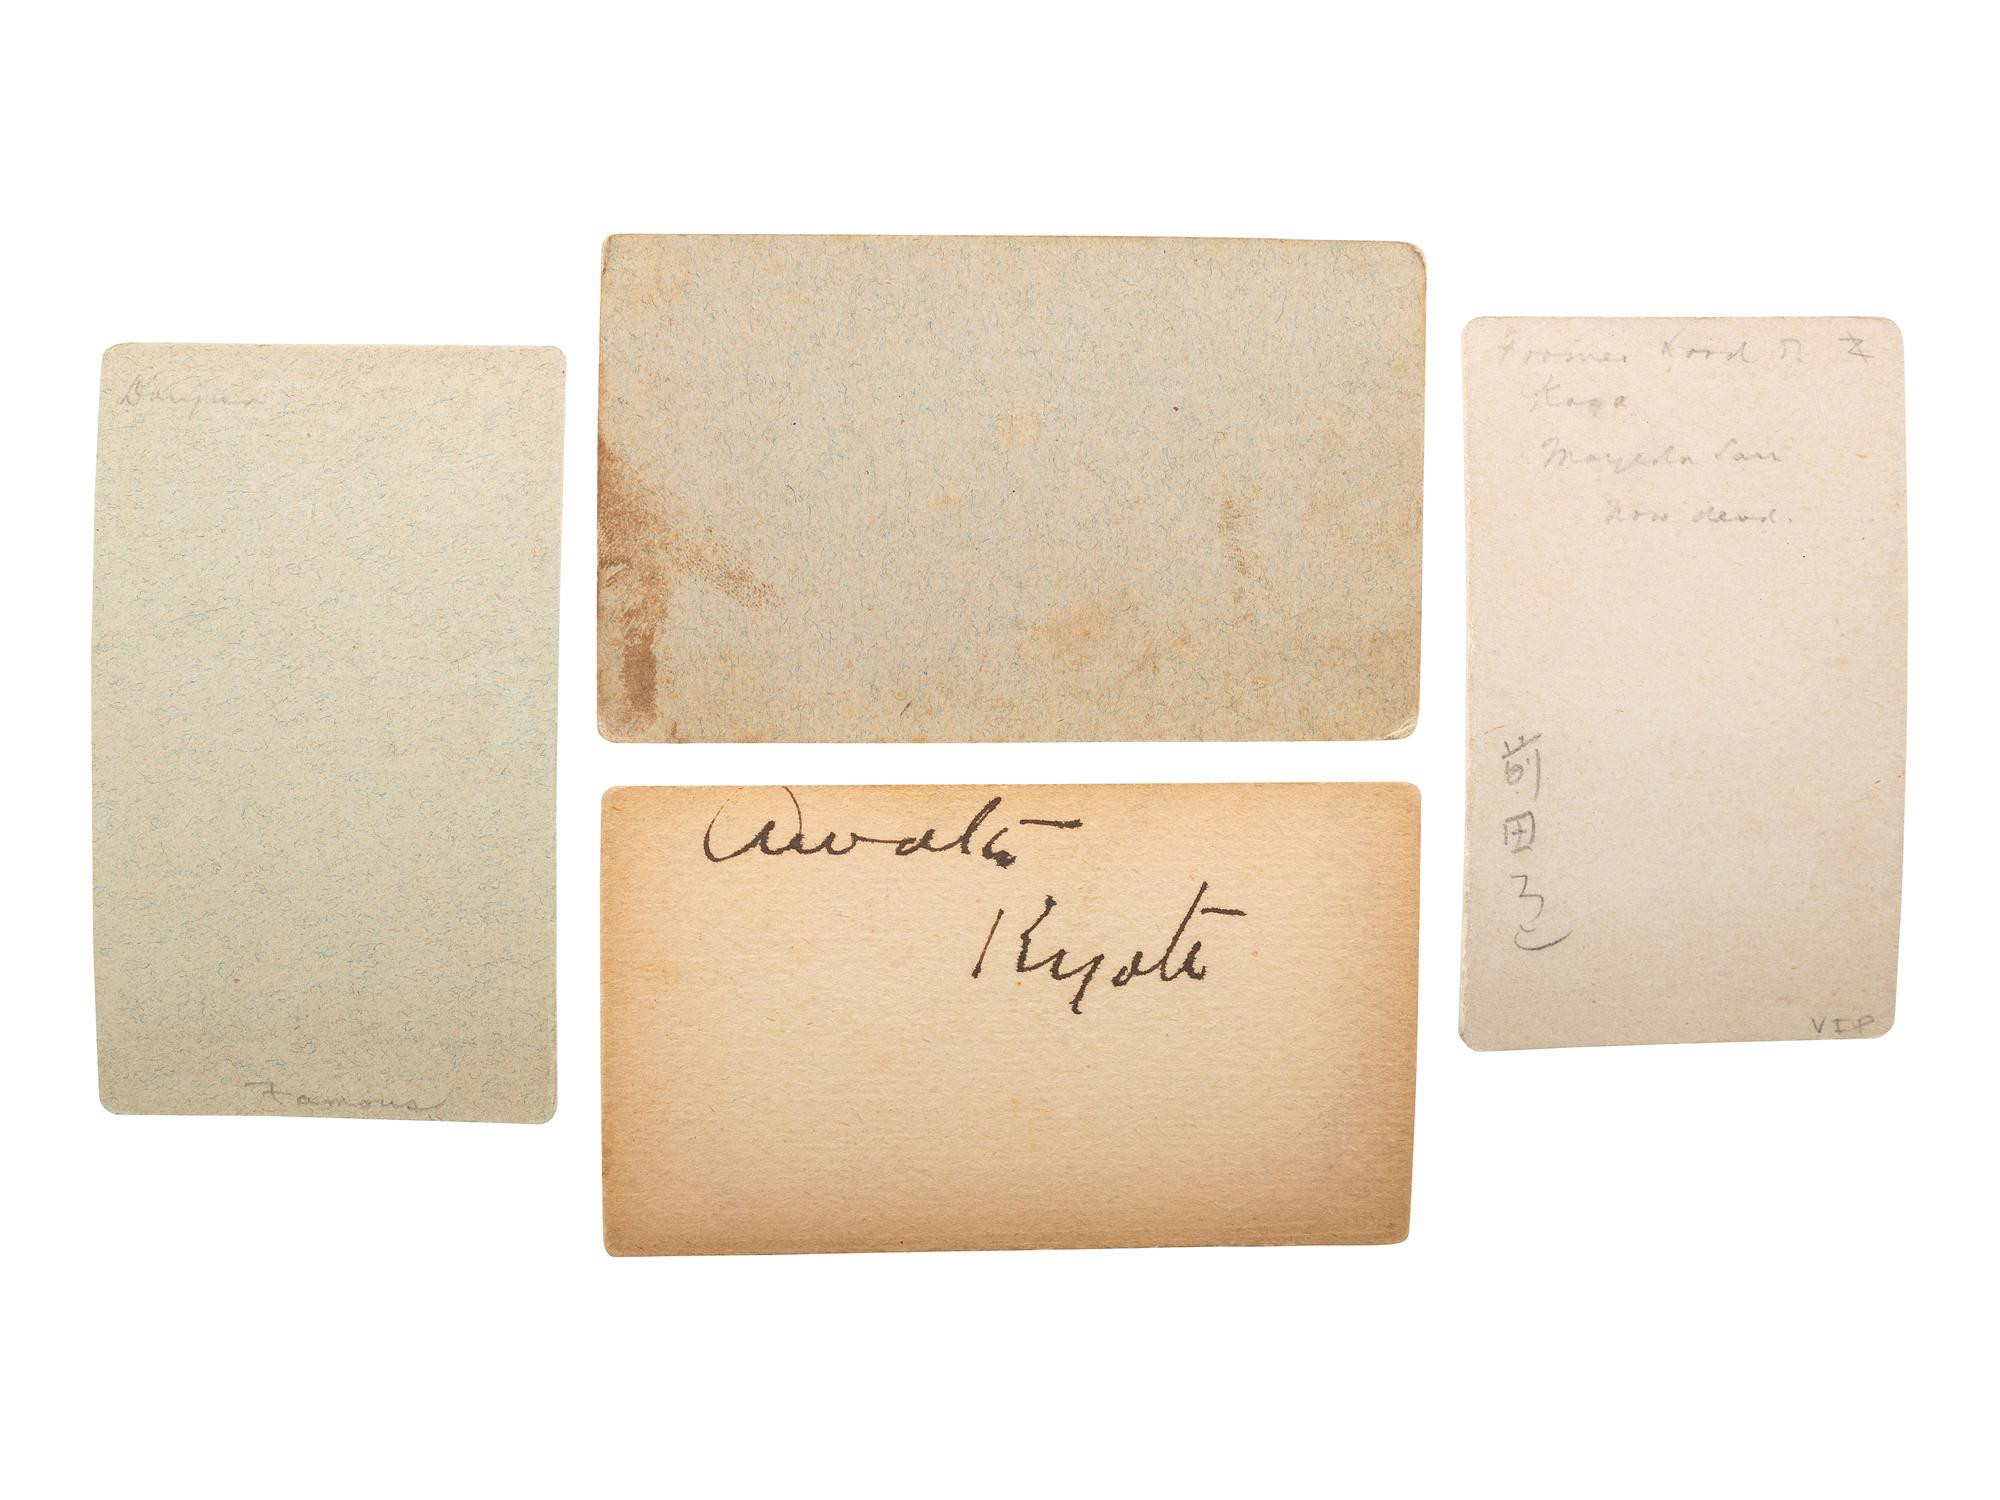 Famous
Awata
Kyoto
Former Lord of
Kaga
Mayeda San
now dead.
前田
VIP